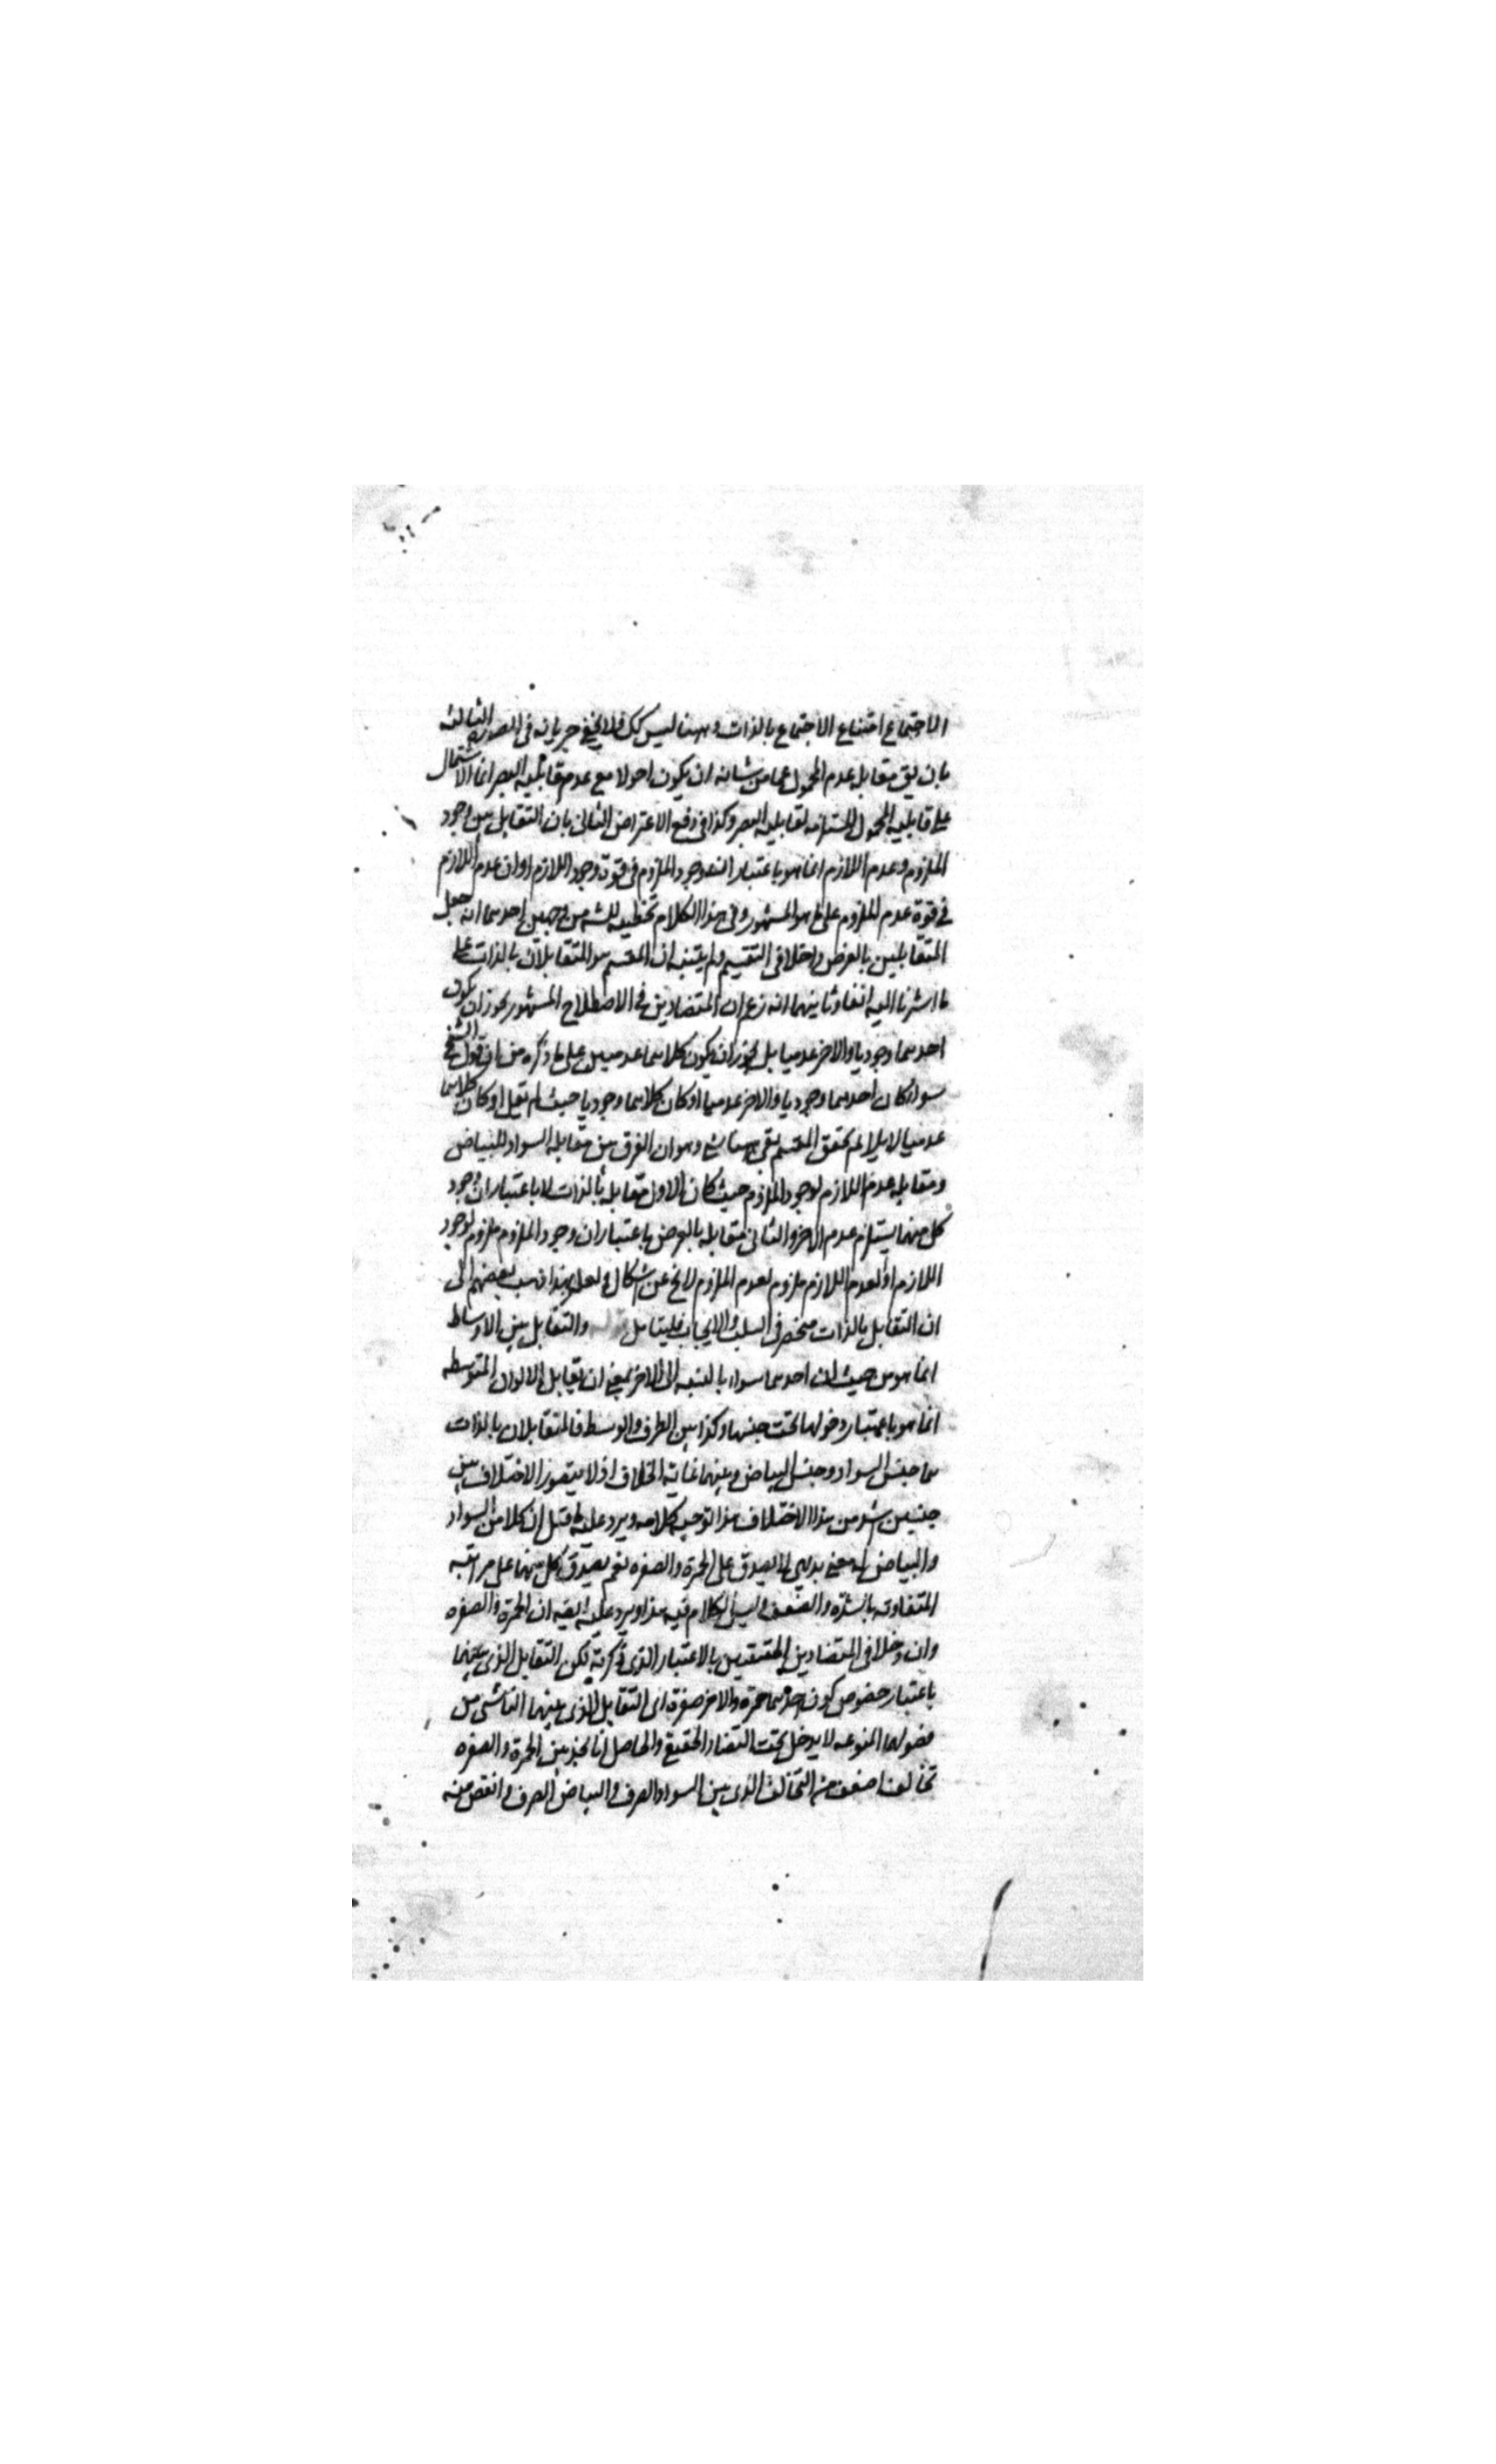 الاجتماع امتناع الاجتماع بالذات وههنا ليس كك فلا يخفى جريانه فى الصورة الثالثه
بان يق تقابل عدم المحمول عما من شانه ان يكون احولا مع عدم قابليه البصر انما الاشتمال
على قابليه المحمول المستلزمه لقابليه البصر وكذا فى دفع الاعتراض الثانى بان التقابل بين وجود
الملزوم وعدم اللازم انما هو باعتبار ان وجود الملزوم فى قوة وجود اللازم او ان عدم اللازم
فى قوة عدم الملزوم على ما هو المشهور وفى هذا الكلام تخطيه للشه من وجهين احدهما انه جعل
المتقابلين بالعرض داخلا فى التقسيم ولم يتنبه ان المقسم هو المتقابلان بالذات على
ما اشرنا اليه انفا وثانيهما انه زعم ان المتضادين فى الاصطلاح المشهور يجوز ان يكون
احدهما وجوديا والاخر عدميا بل يجوز ان يكون كلاهما عدميين على ما ذكره من ان قول الشيخ
سواء كان احدهما وجوديا والاخر عدميا او كان كلاهما وجوديا حيث لم يقل او كان كلاهما
عدميا لا يلايم تحقق المقسم بقى ههنا شئ وهو ان الفرق بين تقابل السواد للبياض
ومقابله عدم اللازم لوجود الملزوم حيث كان الاول تقابله بالذات لا باعتبار ان وجود
كل منهما يستلزم عدم الاخر والثانى تقابله بالعرض باعتبار ان وجود الملزوم ملزوم لوجود
اللازم او لعدم اللازم ملزوم لعدم الملزوم لا يخ عن اشكال ولعل لهذا ذهب بعضهم الى
ان التقابل بالذات منحصر فى السلب والايجاب فليتامل والتقابل بين الاوساط
انما هو من حيث ان احدهما سواد بالنسبه الى الاخر بمعنى ان تقابل الالوان المتوسطه
انما هو باعتبار دخولها تحت جنسها وكذا بين الطرف والوسط فالمتقابلان بالذات
هما جنس السواد وجنس البياض وبينهما غاية الخلاف اذ لا يتصور الاختلاف بين
جنسين اشد من هذا الاختلاف هذا توجيه كلامه ويرد عليه ما قيل ان كلا من السواد
والبياض له معنى بديهى لا يصدق على الحمرة والصفره نعم يصدق كل منهما على مراتبه
المتفاوته بالشدّه والضعف وليس الكلام فيه هذا ويرد عليه ايضه ان الحمرة والصفره
وان دخلا فى المتضادين الحقيقيين بالاعتبار الذى ذكرته لكن التقابل الذى بينهما
باعتبار خصوص كون احدهما حمرة والاخر صفرة اى التقابل الذى بينهما الناشى من
فصولهما المنوعه لا يدخل تحت التضاد الحقيقى والحاصل انا نجد بين الحمرة والصفره
تخالفا اضعف من التخالف الذى بين السواد الصرف والبياض الصرف وانقص منه